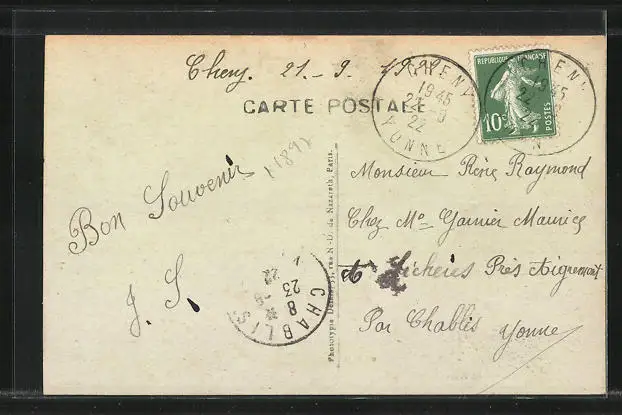 Cheny. 21-9. 1922
CARTE POSTALE
CHENY
1945
22-9
22
YONNE
REPUBLIQUE FRANÇAISE
10c
Bon Souvenir
J. S.
CHABLIS
8
23
22
Phototypie Desaix, rue N.-D. de Nazareth, Paris.
Monsieur René Raymond
Chez Mr Garnier Maurice
Lichères Près Aigremont
Par Chablis
Yonne